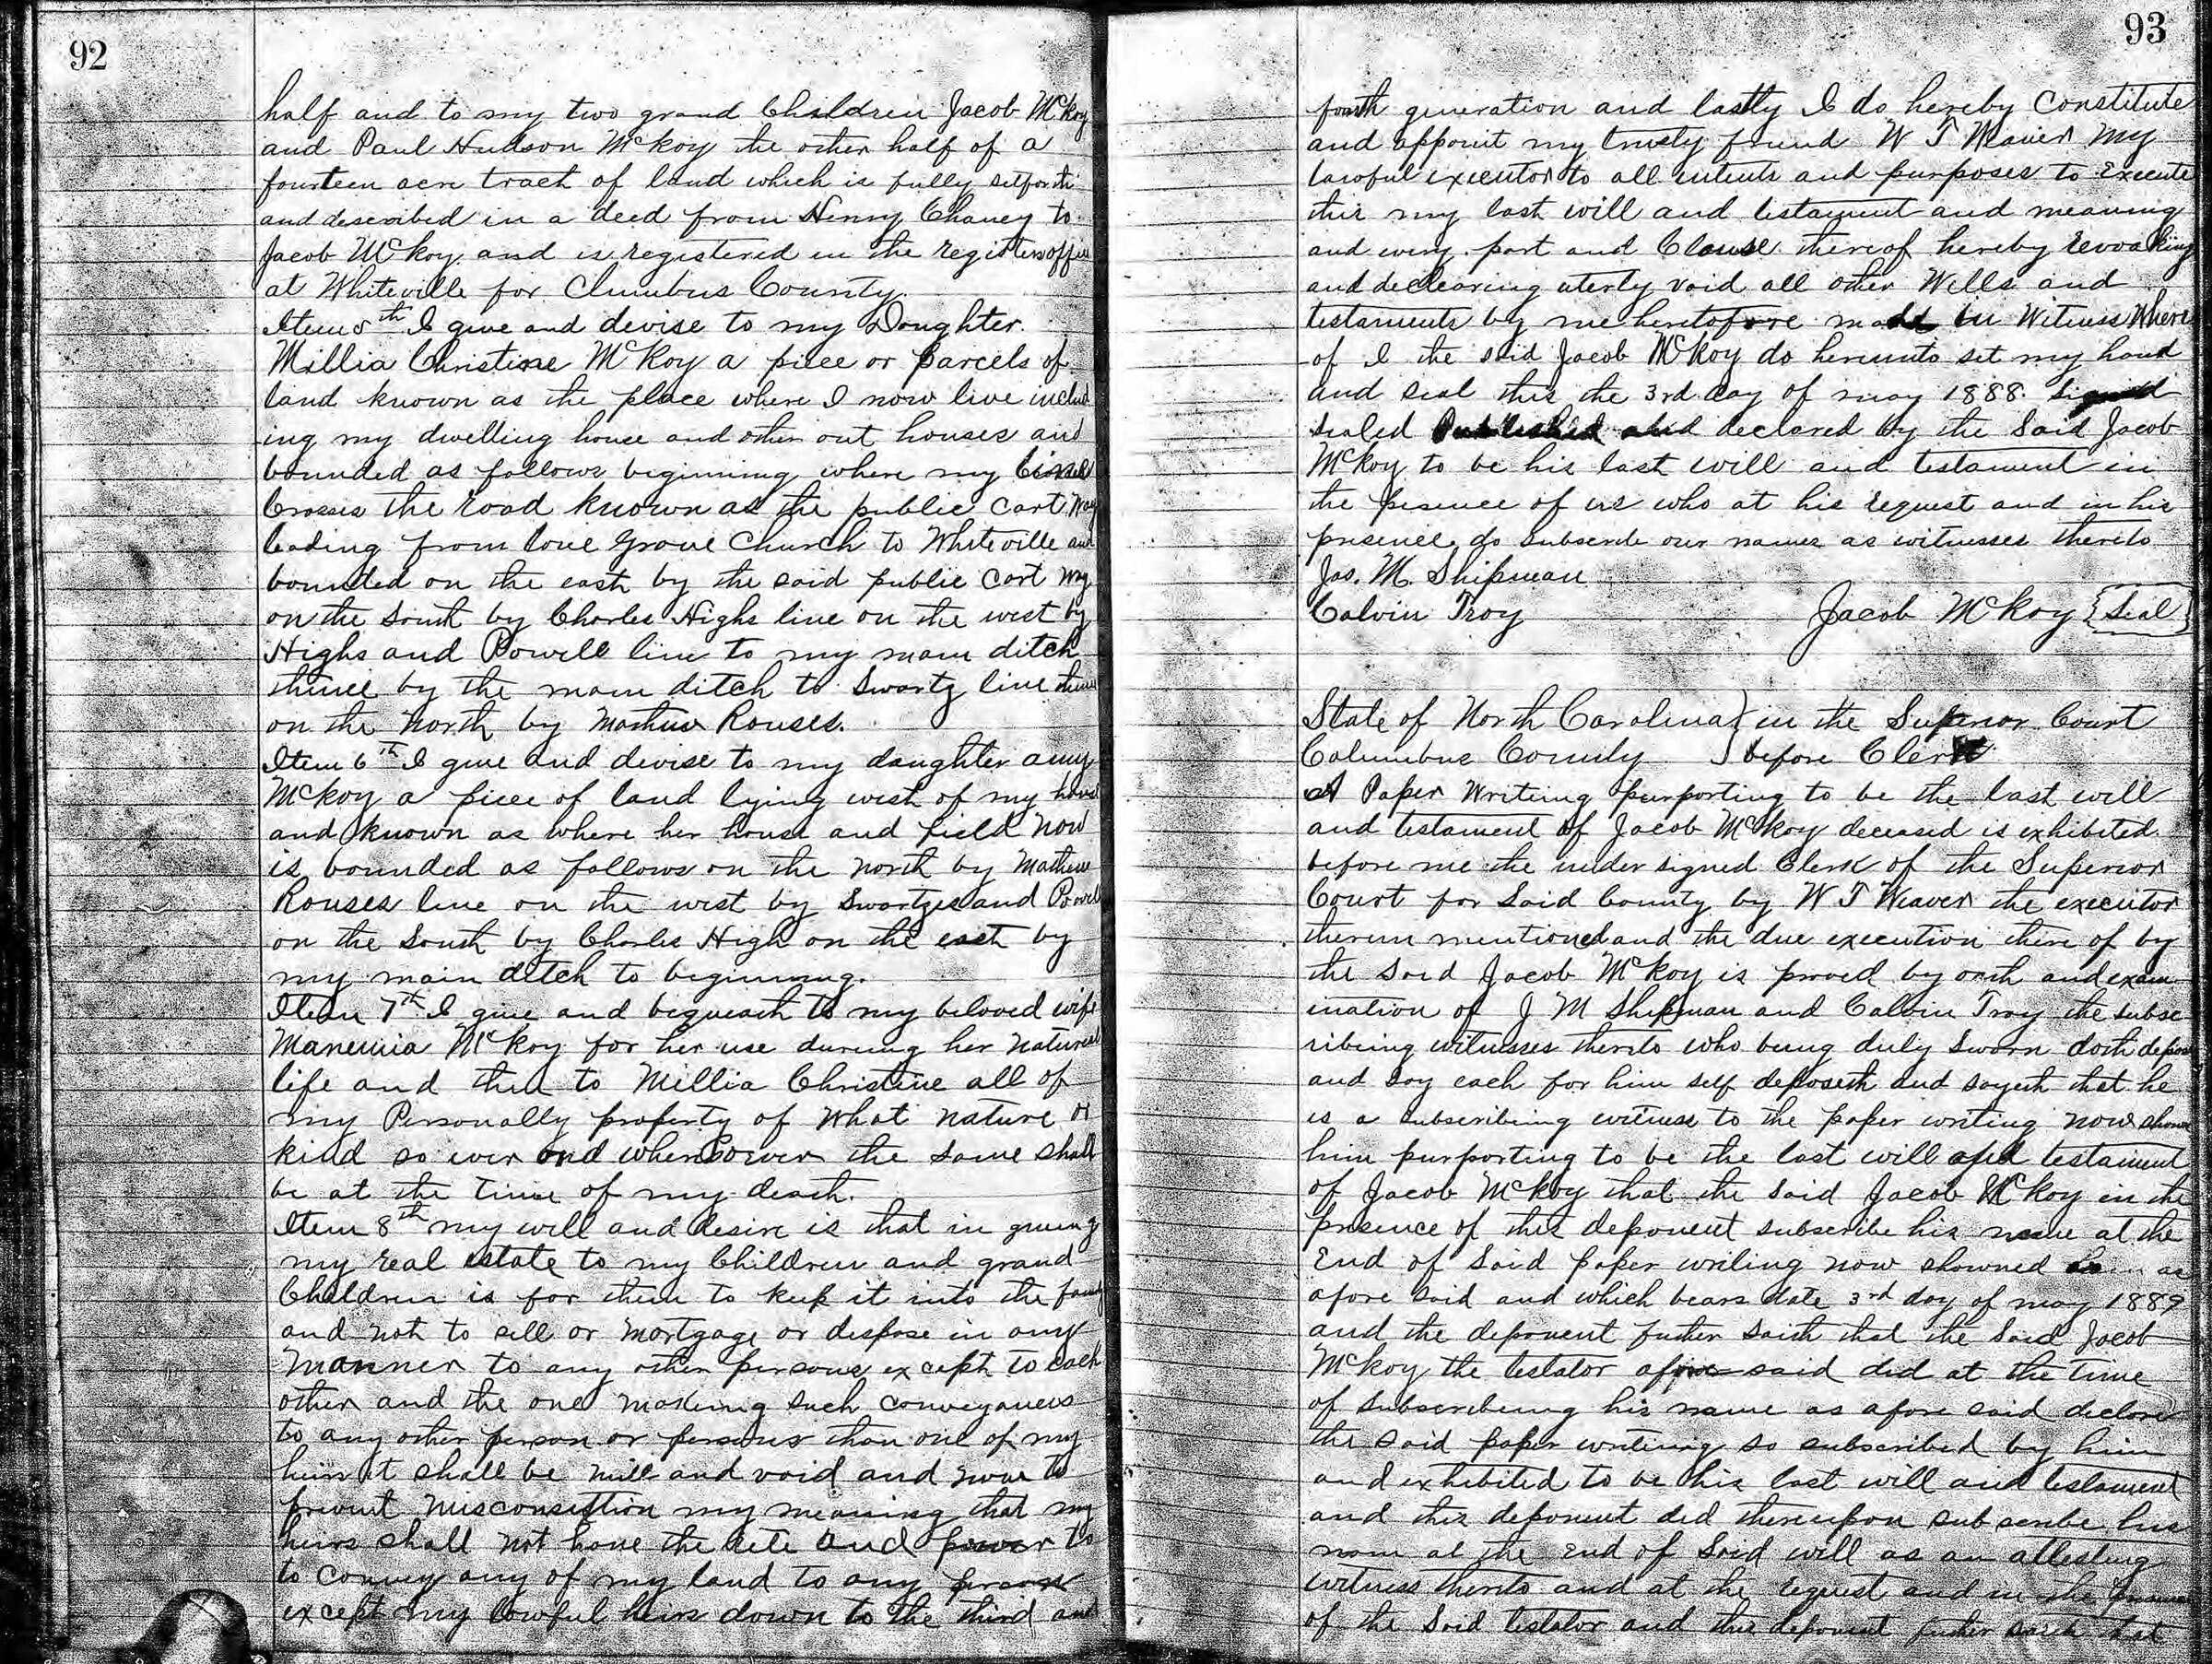 92
half and to my two grand Children Jacob McKoy
and Paul Hudson McKoy the other half of a
fourteen acre tract of land which is fully setforth
and described in a deed from Henry Chancy to
Jacob McKoy and is registered in the registers office
at Whiteville for Clumbus County.
Item 5th I give and devise to my Doughter
Millia Christine McKoy a piece or parcels of
land known as the place where I now live includ
ing my dwelling house and other out houses and
bounded as follows beginning where my
Crosses the road known as the public cart way
leading from love Grove Church to Whiteville and
bounded on the east by the said public cart way
on the South by Charles Highs line on the west by
Highs and Powell line to my main ditch
thence by the main ditch to Swartz line thence
on the North by Mathew Rouses.
Item 6th I give and devise to my daughter amy
McKoy a piece of land lying west of my house
and known as where her house and field now
is bounded as follows on the north by Mathew
Rouses line on the west by Swartzes and Powell
on the South by Charles High on the east by
my main ditch to beginning.
Item 7th I give and bequeath to my beloved wife
McKoy for her use during her natural
life and then to Millia Christine all of
my Personally property of what nature or
kind so ever and whensoever the same shall
be at the time of my death.
Item 8th my will and desire is that in giving
my real estate to my Children and grand
Children is for them to keep it into the family
and not to sell or mortgage or dispose in any
manner to any other persons except to each
other and the one making such conveyances
to any other person or persons than one of my
heirs it shall be null and void and now to
prevent my meaning that my
heirs shall not have the rite and power to
to convey any of my land to any person
except my lawful heirs down to the third and
93
fourth generation and lastly I do hereby Constitute
and appoint my trusty friend W T Weaver my
lawful executor to all intents and purposes to Execute
this my last will and testament and meaning
and every part and Clause thereof hereby revoaking
and declearing uterly void all other Wills and
testaments by me heretofore made In Witness Where
of I the said Jacob McKoy do hereunto set my hand
and seal this the 3rd day of may 1888. Signed
sealed Published and declared by the Said Jacob
McKoy to be his last will and testament in
the presence of us who at his request and in his
presence do subscribe our names as witnesses thereto
Jas. M. Shipman
Calvin Troy Jacob McKoy {Seal}
State of North Carolina } in the Superior Court
Columbus County } before Clerk
A Paper Writing purporting to be the last will
and testament of Jacob McKoy deceased is exhibited
before me the under signed Clerk of the Superior
Court for Said County by W T Weaver the executor
therein mentioned and the due execution there of by
the Said Jacob McKoy is proved by oath and exam
ination of J M Shipman and Calvin Troy the subsc
ribeing witnesses thereto who being duly Sworn doth depose
and say each for him self deposeth and sayeth that he
is a subscribeing witness to the paper writing now shown
him purporting to be the last will and testament
of Jacob McKoy that the Said Jacob McKoy in the
presence of this deponent subscribe his name at the
End of Said paper writing now showned as
afore said and which bears date 3rd day of may 1889
and the deponent futher Saith that the Said Jacob
McKoy the testator afore said did at the time
of subscribeing his name as afore said declare
the said paper writing so subscribed by him
and exhibited to be his last will and testament
and this deponent did thereupon subscribe his
name at the End of Said will as an attesting
witness thereto and at the request and in the presence
of the Said testator and this deponent futher saith that